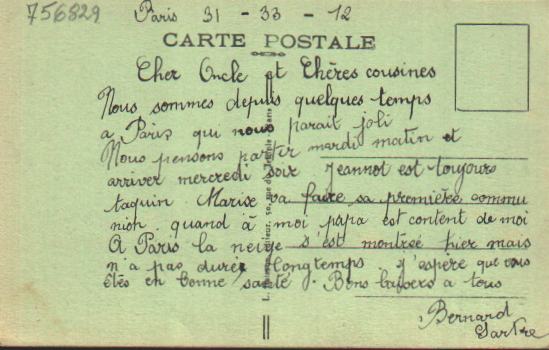 756829
Paris 31 - 33 - 12
CARTE POSTALE
Cher Oncle et Chères cousines
Nous sommes depuis quelques temps
a Paris qui nous parait joli
Nous pensons partir mardi matin et
arriver mercredi soir Jeannot est toujours
taquin Marise va faire sa première commu
nion quand à moi papa est content de moi
A Paris la neige s'est montreé hier mais
n'a pas durée longtemps j'espère que vous
êtes en bonne santé. Bons baisers a tous
Bernard
Sartre